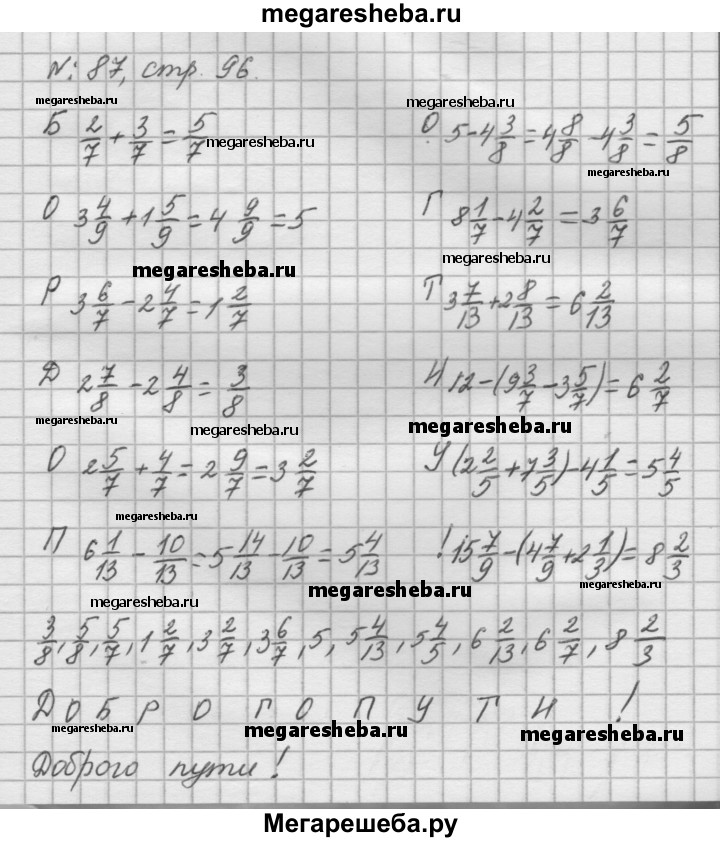 megaresheba.ru
№: 87, стр. 96.
megaresheba.ru megaresheba.ru
Б 2/7 + 3/7 = 5/7 megaresheba.ru О. 5 - 4 3/8 = 4 8/8 - 4 3/8 = 5/8
megaresheba.ru
О 3 4/9 + 1 5/9 = 4 9/9 = 5 Г 8 1/7 - 4 2/7 = 3 6/7
megaresheba.ru
Р 3 6/7 - 2 4/7 = 1 2/7 Т 3 7/13 + 2 8/13 = 6 2/13
Д 2 7/8 - 2 4/8 = 3/8 И 12 - (9 3/7 - 3 5/7) = 6 2/7
megaresheba.ru megaresheba.ru megaresheba.ru
О 2 5/7 + 4/7 = 2 9/7 = 3 2/7 У (2 2/5 + 7 3/5) - 4 1/5 = 5 4/5
megaresheba.ru
П 6 1/13 - 10/13 = 5 14/13 - 10/13 = 5 4/13 ! 15 7/9 - (4 7/9 + 2 1/3) = 8 2/3
megaresheba.ru megaresheba.ru megaresheba.ru
3/8, 5/8, 5/7, 1 2/7, 3 2/7, 3 6/7, 5, 5 4/13, 5 4/5, 6 2/13, 6 2/7, 8 2/3
Д О Б Р О Г О П У Т И !
megaresheba.ru megaresheba.ru megaresheba.ru
Доброго пути!
Мегарешеба.ру